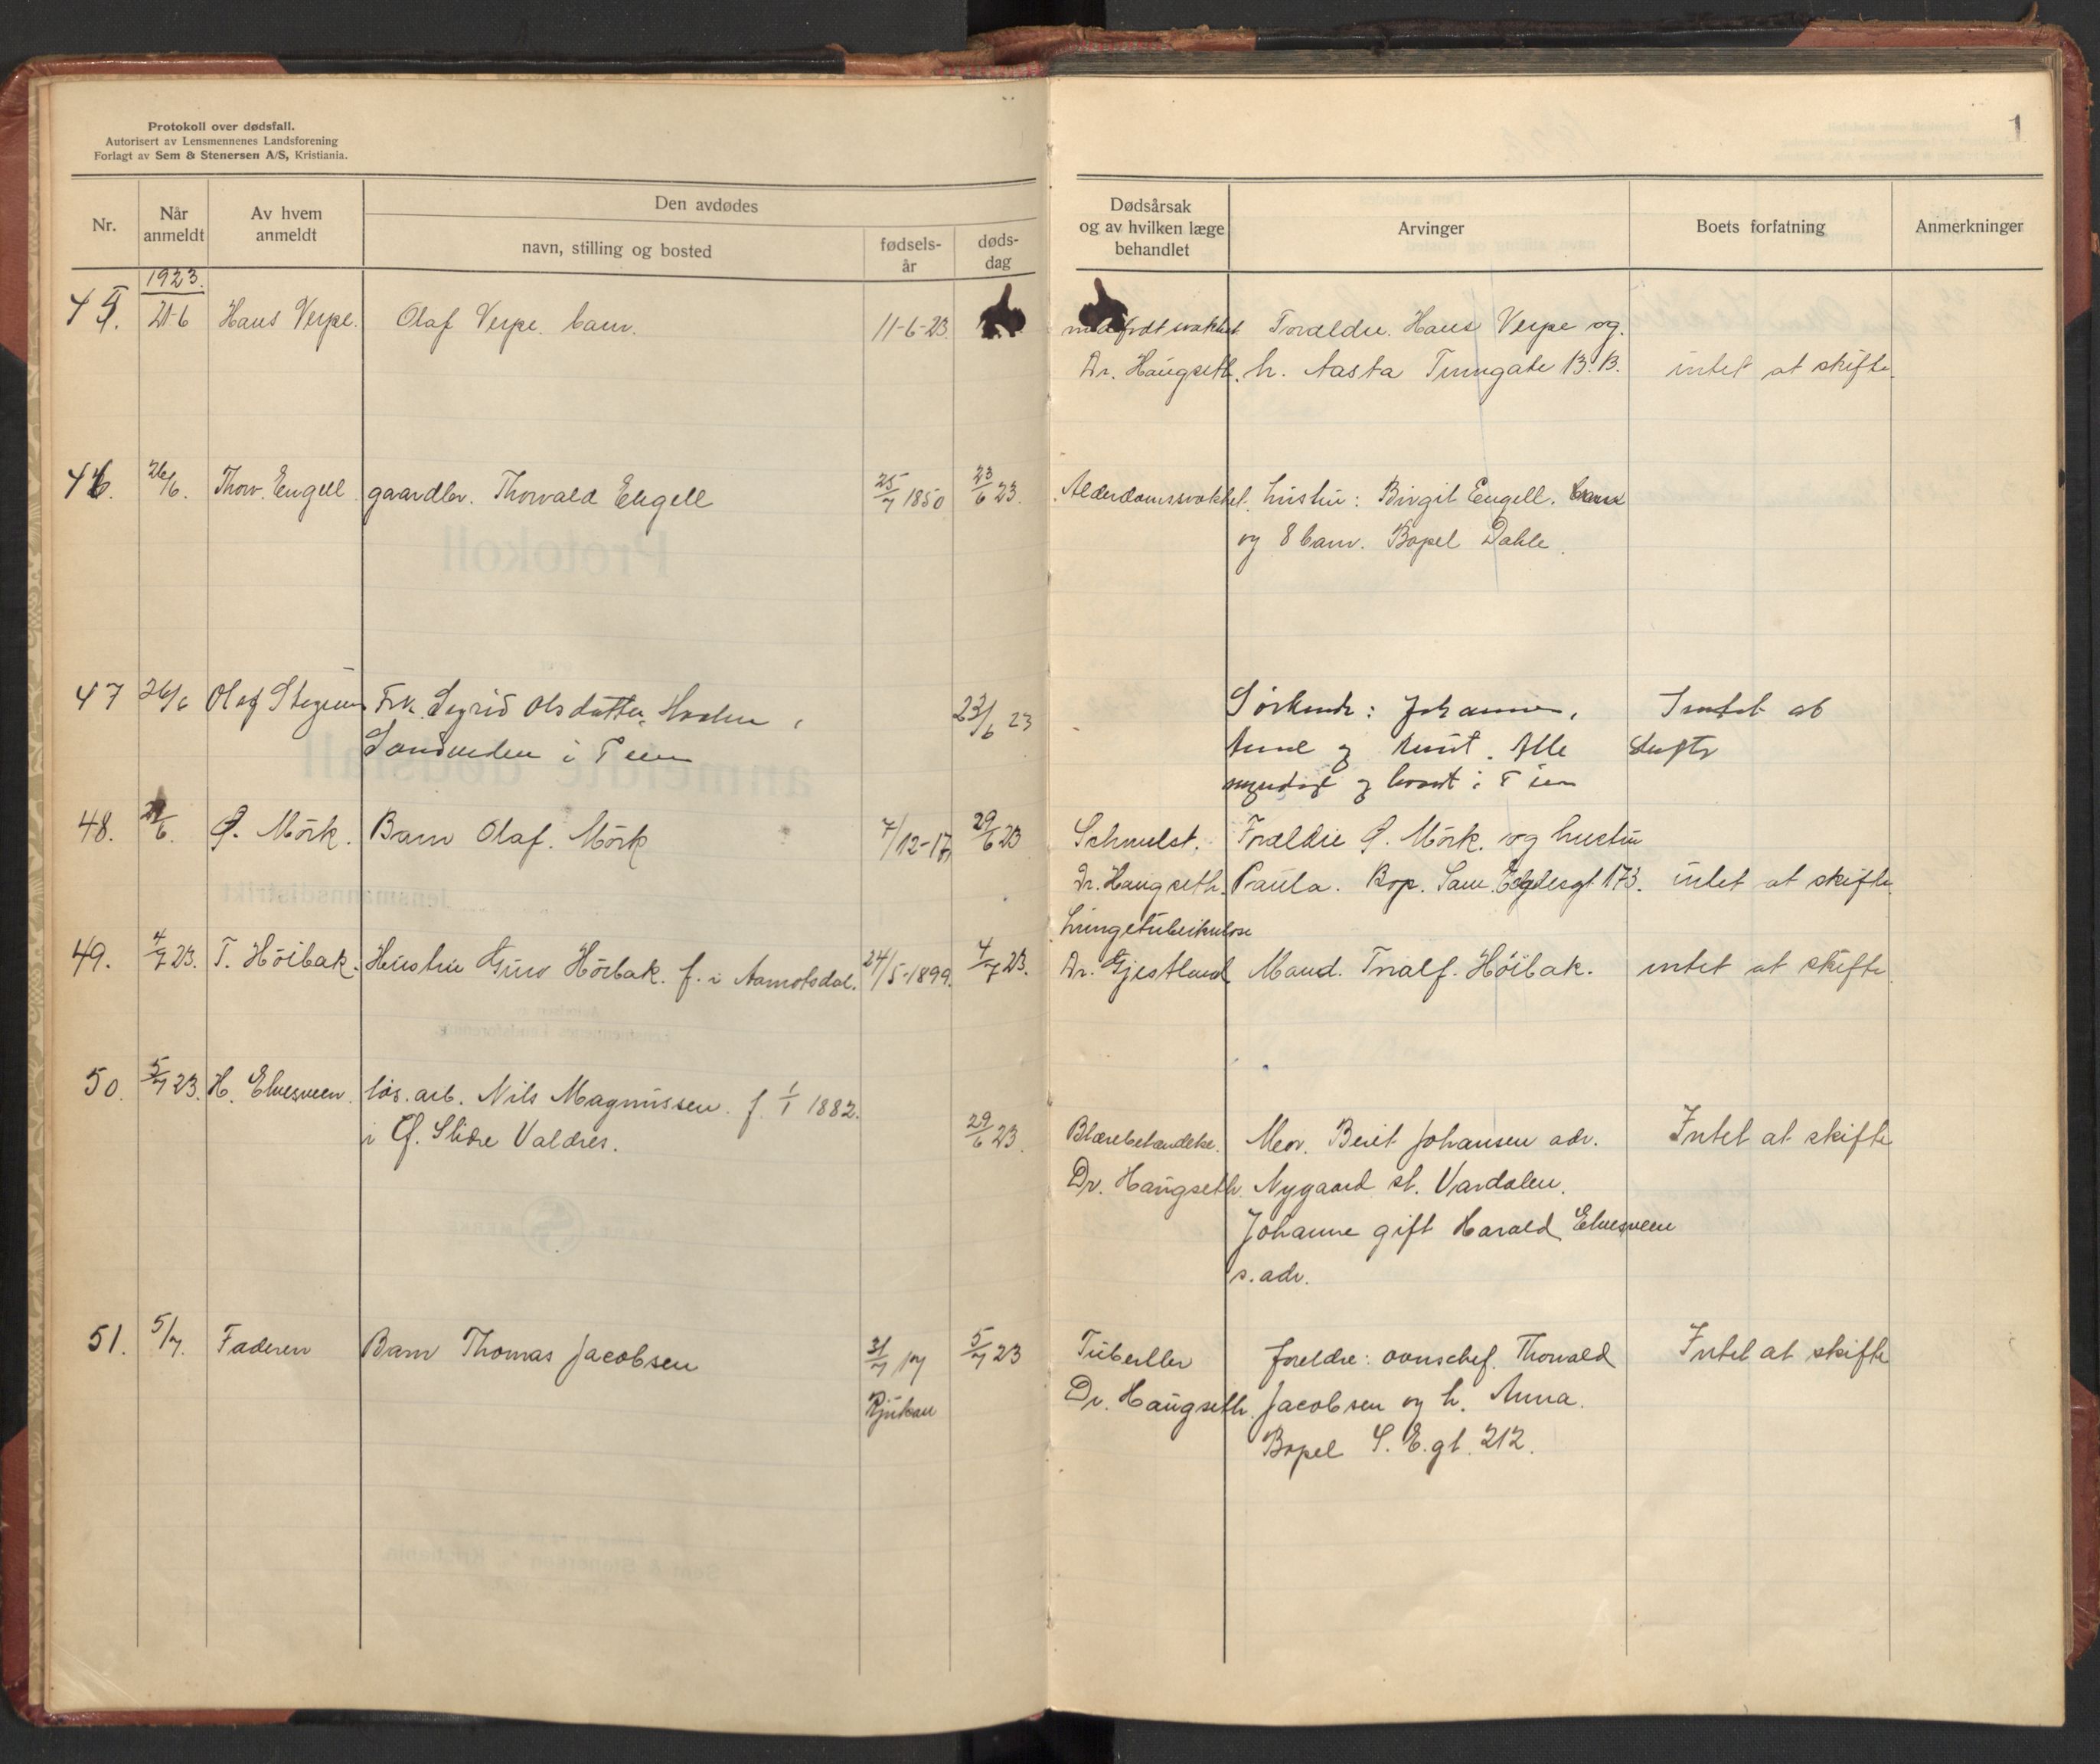 Protokoll over dødsfall.
Autorisert av Lensmennenes Landsforening
Forlagt av Sem & Stenersen A/S, Kristiania.
1
Nr.
Når anmeldt
Av hvem anmeldt
Den avdødes
navn, stilling og bosted
fødsels-år
døds-dag
Dødsårsak og av hvilken læge behandlet
Arvinger
Boets forfatning
Anmerkninger
1923.
45. 21-6 Hans Verpe. Olaf Verpe. barn. 11-6-23. medfødt svakhet Forældre. Hans Verpe og.
Dr. Haugseth. h. Aasta Tinngate 13.B. intet at skifte.
46. 26/6. Thorv. Engell gaardbr. Thorvald Engell 25/7 1850 23/6 23. Alderdomssvakhet. hustru: Birgit Engell.
og 8 barn. Bopel Dahle.
47 26/6 Olaf Frk. Sigrid Olsdatter 23/6 23 Søskende: Johannes, Intet at
i Tinn Anne og Knut. Alle skifte
myndige og bosat i Tinn
48. /6. Mörk. Barn Olaf. Mörk 7/12-17. 29/6 23 Schmelst. Foreldre Mörk. og hustru
Dr. Haugseth. Paula. Bop. Sam Eydesgt. 173. intet at skifte.
Lungetuberkulose
49. 4/7 23. T. Höibak. Hustru Guro Höibak. f. i Aamotsdal. 24/5-1899. 4/7 23. Dr. Gjestland Mand. Troalf. Höibak. intet at skifte.
50. 5/7 23. H. Elvesveen. løs. arb. Nils Magnussen. f. 1/1 1882.
i Ø. Slidre Valdres. 29/6 23. Blærebetændelse. Mor. Berit Johansen adr. Intet at skifte
Dr. Haugseth. Nygaard st. Vardalen.
Johanne gift Harald Elvesveen
s. adr.
51. 5/7. Faderen Barn Thomas Jacobsen 31/7 17 5/7 23 Tuberkler foreldre: ovnschef. Thorvald Intet at skifte
Rjukan Dr. Haugseth. Jacobsen og h. Anna.
Bopel S. E. gt. 212.